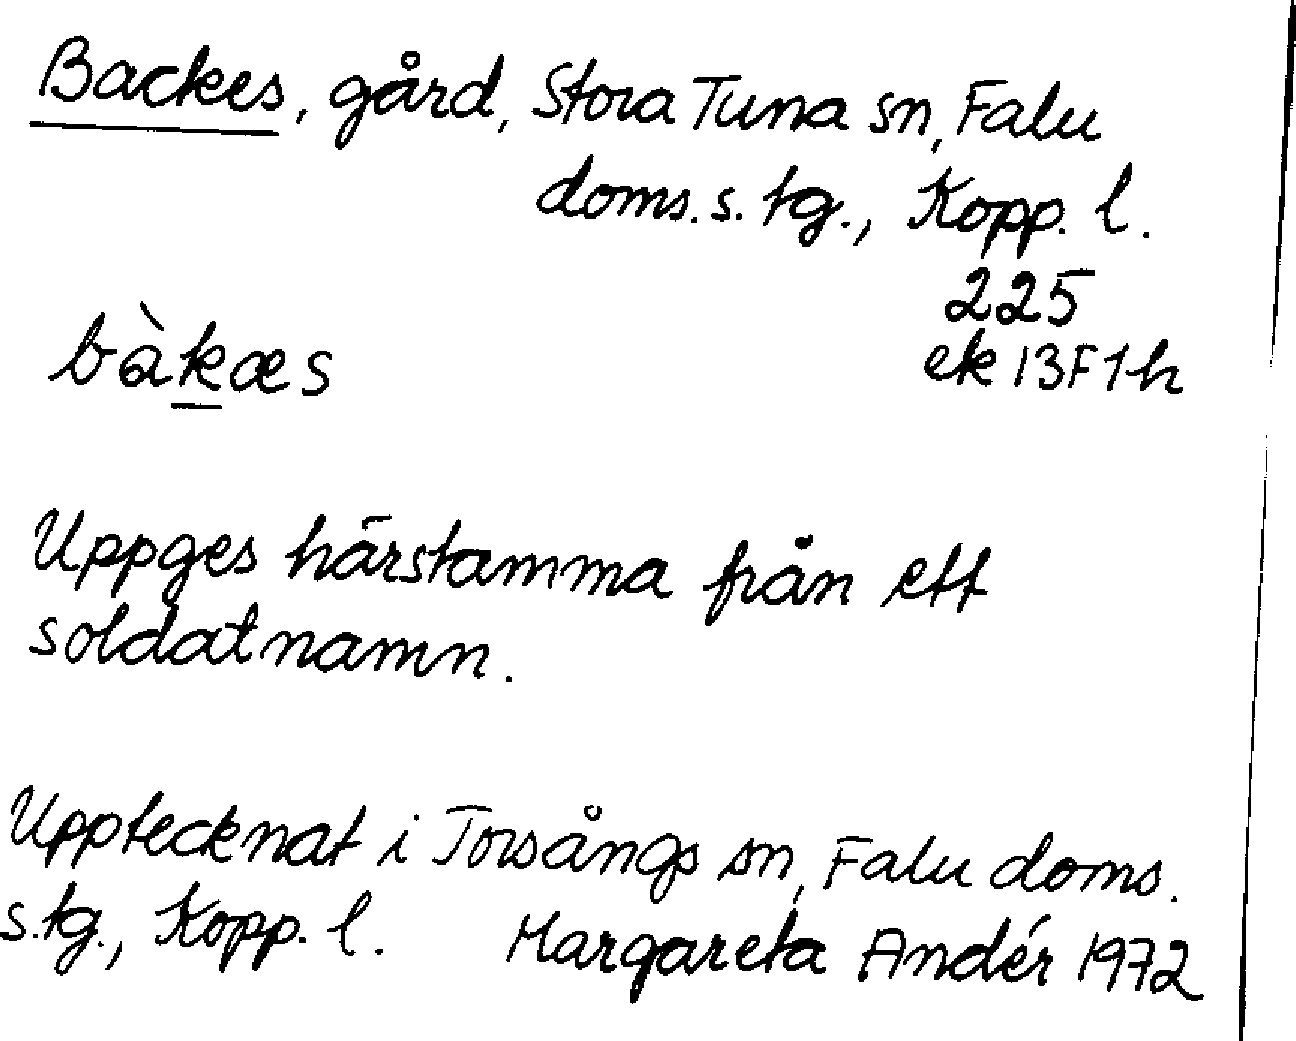 Backes, gård, Stora Tuna sn, Falu
doms. s. tg., Kopp. l.
225
bàkæs
ek 13F1h
Uppges härstamma från ett
soldatnamn.
Upptecknat i Torsångs sn, Falu doms.
s. tg., Kopp. l. Margareta Andér 1972